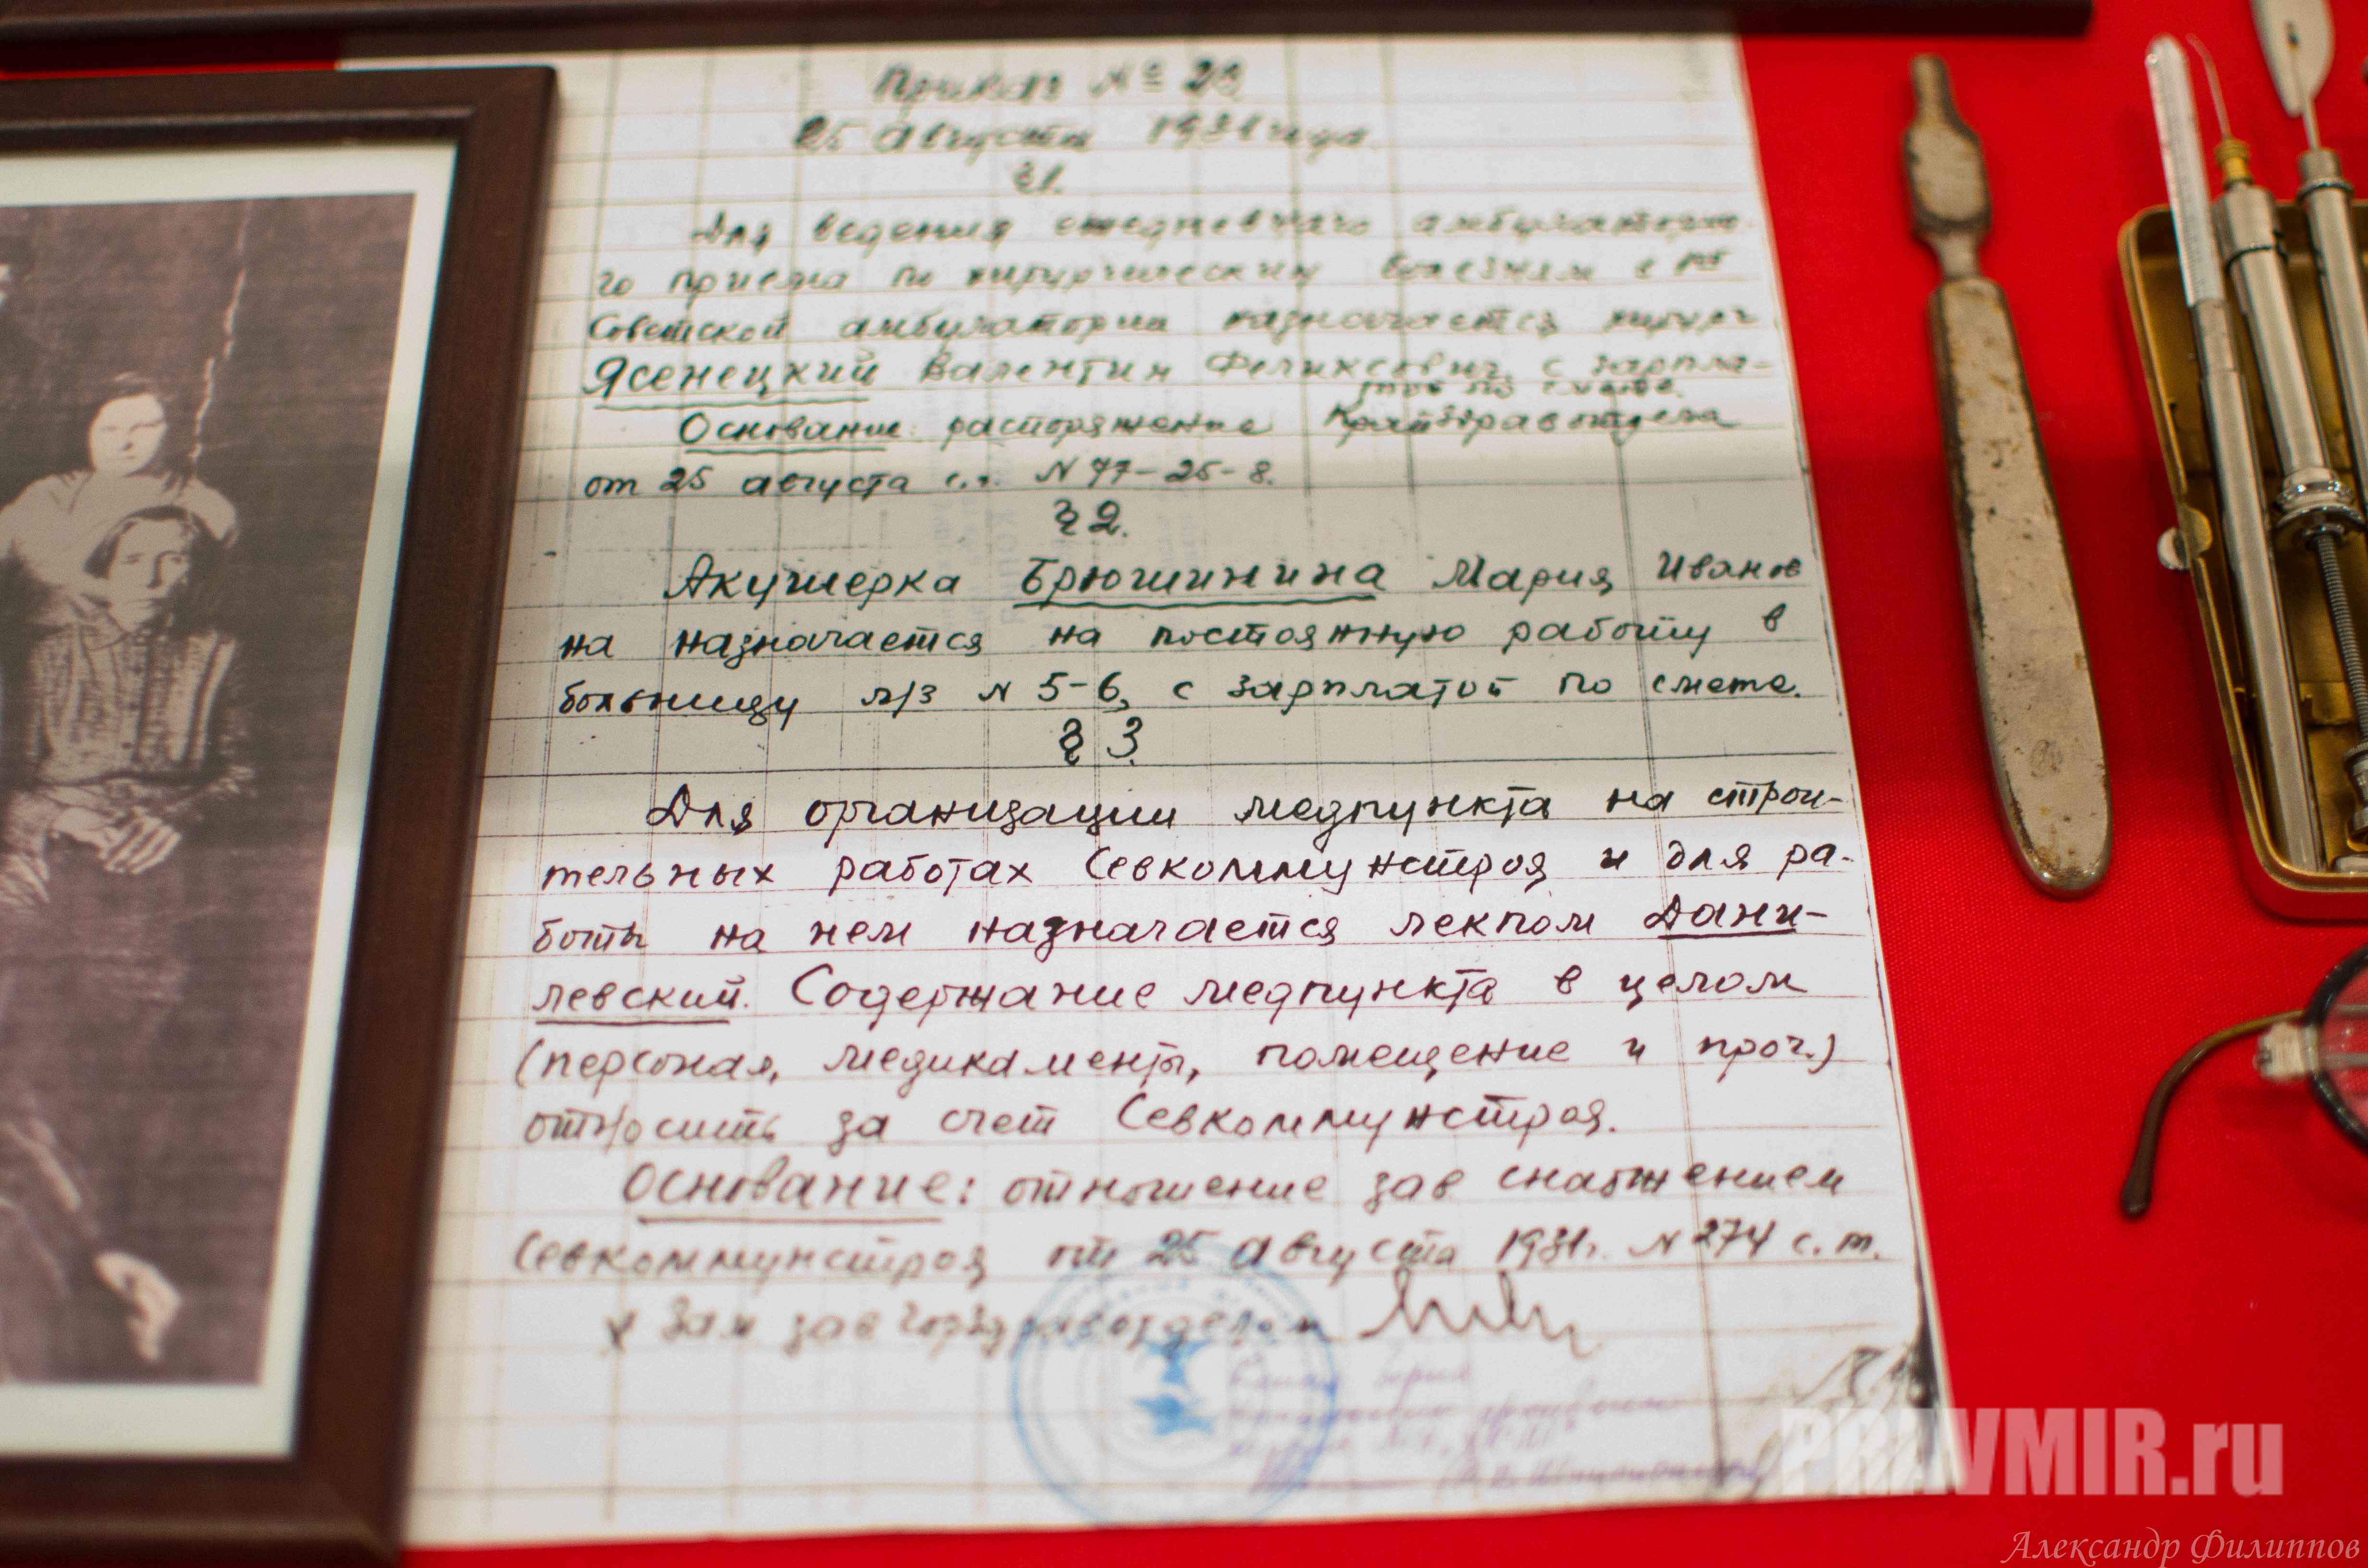 Приказ № 28
25 Августа 1931 года.
§1.
Для ведения ежедневнаго амбулаторно-
го приема по хирургическим болезням в 1ой
Советской амбулатории назначается хирург
Ясенецкий Валентин Феликсович, с зарпла-
той по смете.
Основание: распоряжение Крайздравотдела
от 25 августа с.г. N 77-25-8.
§ 2.
Акушерка Брюшинина Мария Иванов
на назначается на постоянную работу в
больницу л/з N 5-6, с зарплатой по смете.
§ 3.
Для организации медпункта на строи-
тельных работах Севкоммунстроя и для ра-
боты на нем назначается лекпом Дани-
левский. Содержание медпункта в целом
(персонал, медикаменты, помещение и проч.)
относить за счет Севкоммунстроя.
Основание: отношение зав снабжением
Севкоммунстроя от 25 Августа 1931г. N 274 с.т.
Зам зав Горздравотделом
PRAVMIR.ru
Александр Филиппов